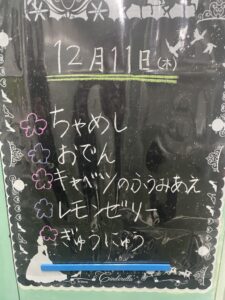 12月11日(木)
ちゃめし
おでん
キャベツのふうみあえ
レモンゼリー
ぎゅうにゅう
Cinderella